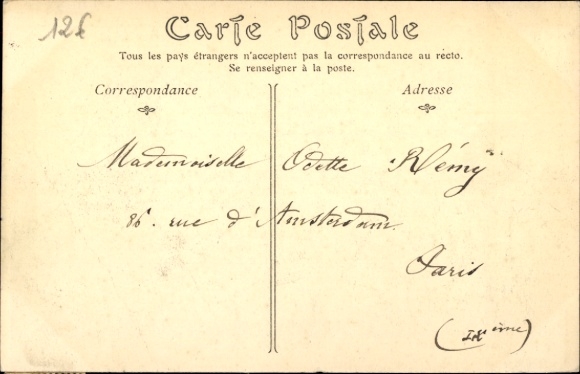 12€
Carte Postale
Tous les pays étrangers n'acceptent pas la correspondance au recto.
Se renseigner à la poste.
Correspondance
Adresse
Mademoiselle Odette Rémy
86. rue d'Amsterdam.
Paris
(IXème)